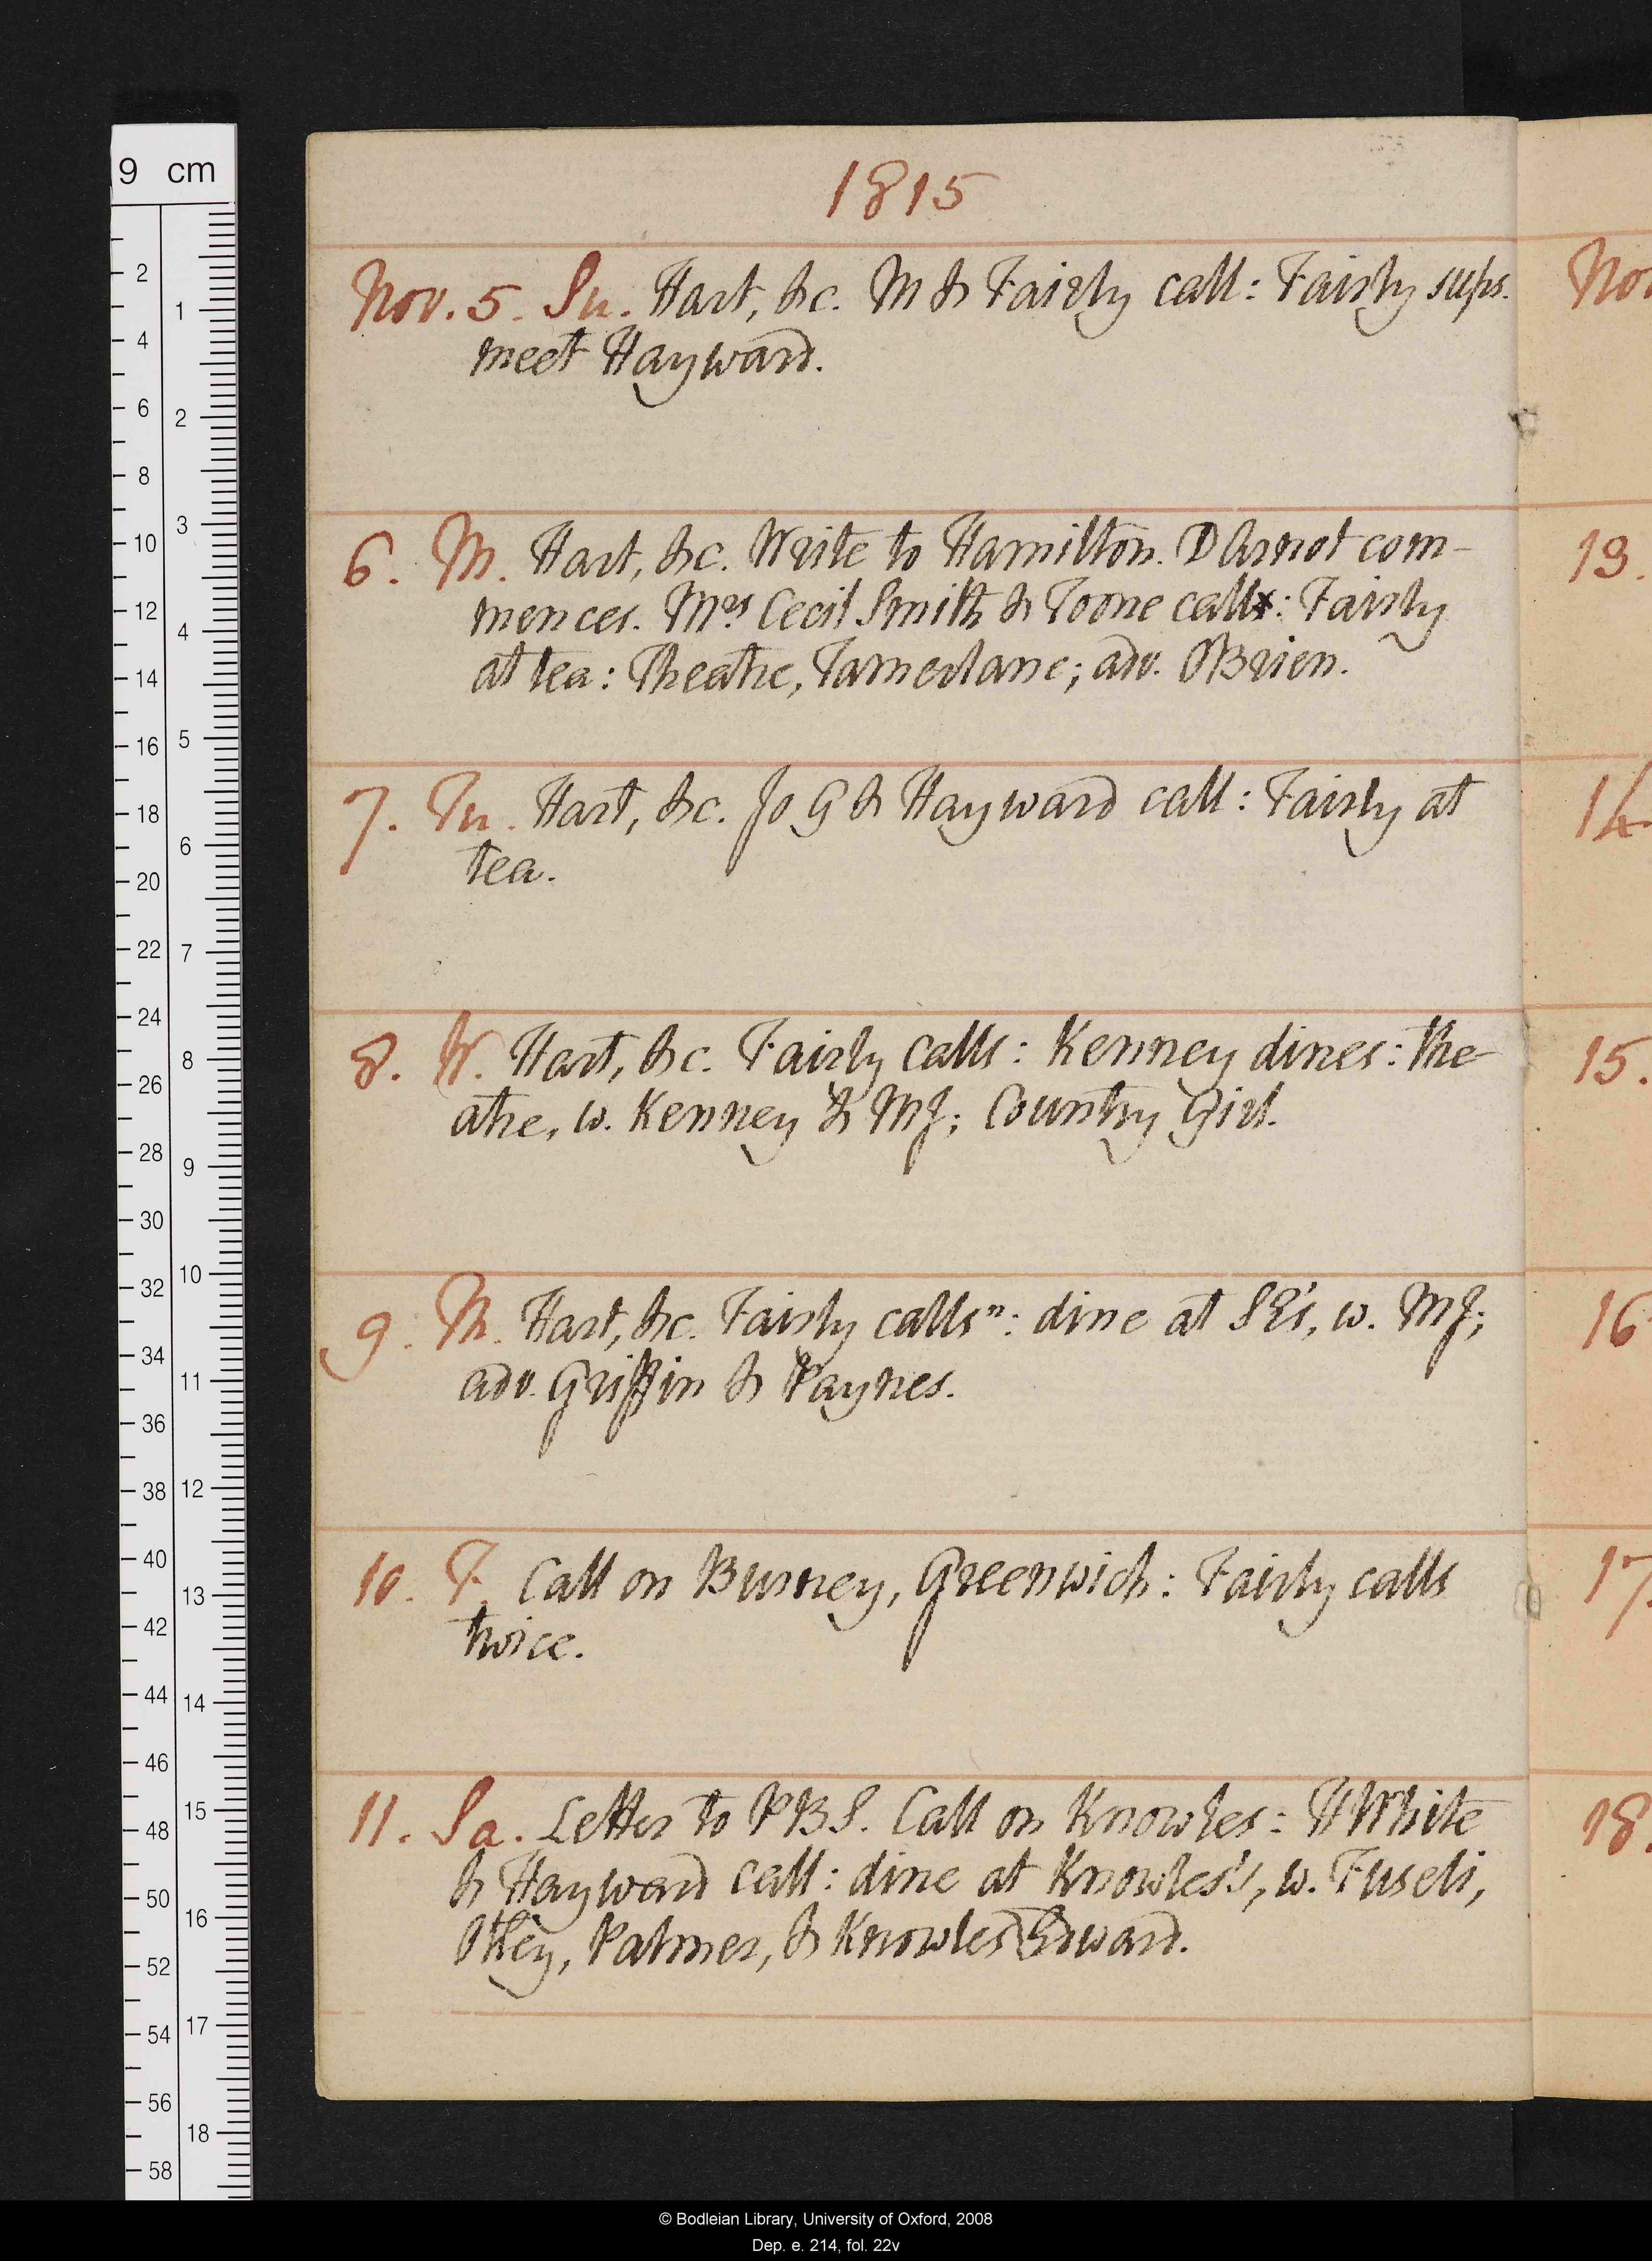 9 cm
1815
Nov. 5. Su. Hart, &c. M & Fairly call: Fairly sups.
meet Hayward.
6. M. Hart, &c. Write to Hamilton. D Arnot com-
mences. Mrs Cecil Smith & Toone call: Fairly
at tea: Theatre, Tamerlane; adv. OBrien.
7. Tu. Hart, &c. Jo G & Hayward call: Fairly at
tea.
8. W. Hart, &c. Fairly calls: Kenney dines: The-
atre, w. Kenney & MJ; Country Girl.
9. Th. Hart, &c. Fairly calls n: dine at SE's, w. MJ;
adv. Griffin & Paynes.
10. F. Call on Burney, Greenwich: Fairly calls
twice.
11. Sa. Letter to PBS. Call on Knowles: H White
& Hayward call: dine at Knowles's, w. Fuseli,
Otley, Palmer, & Knowles Edward.
Nov
13.
14
15.
16
17.
18.
2 4 6 8 10 12 14 16 18 20 22 24 26 28 30 32 34 36 38 40 42 44 46 48 50 52 54 56 58
1 2 3 4 5 6 7 8 9 10 11 12 13 14 15 16 17 18
© Bodleian Library, University of Oxford, 2008
Dep. e. 214, fol. 22v